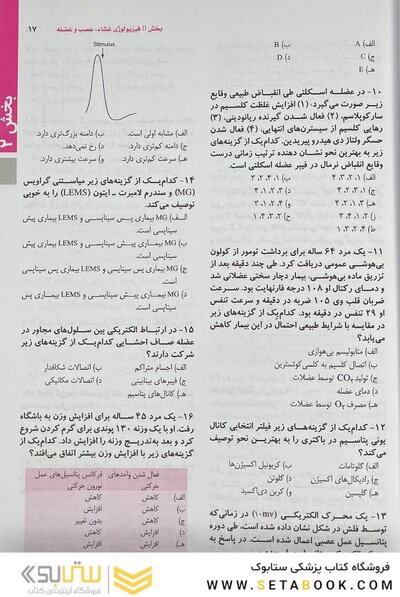 بخش II فیزیولوژی غشاء، عصب و عضله
۱۷
بخش ۲
الف) A
ب) B
ج) C
د) D
هـ) E
۱۰- در عضله اسکلتی طی انقباض طبیعی وقایع
زیر صورت می‌گیرد، (۱) افزایش غلظت کلسیم در
سارکوپلاسم، (۲) فعال شدن گیرنده ریانودینی، (۳)
رهایی کلسیم از سیسترن‌های انتهایی، (۴) فعال شدن
حسگر ولتاژ دی هیدرو پیریدین. کدام‌یک از گزینه‌های
زیر به بهترین نحو نشان دهنده ترتیب زمانی درست
وقایع انقباض نرمال در فیبر عضله اسکلتی است.
۱۱- یک مرد ۶۴ ساله برای برداشت تومور از کولون
بی‌هوشی عمومی دریافت کرد. طی چند دقیقه بعد از
تزریق ماده بی‌هوشی، بیمار دچار سختی عضلانی شد
و دمای رکتال او ۱۰۸ درجه فارنهایت بود. سرعت
ضربان قلب وی ۱۰۵ ضربه در دقیقه و سرعت تنفس
او ۲۹ تنفس در دقیقه بود. کدام‌یک از گزینه‌های زیر
در مقایسه با شرایط طبیعی احتمال در این بیمار کاهش
می‌یابد؟
الف) متابولیسم بی‌هوازی
ب) اتصال کلسیم به کلسی‌کوئسترین
ج) تولید CO₂ توسط عضلات
د) دمای عضله
هـ) مصرف O₂ توسط عضلات
۱۲- کدام‌یک از گزینه‌های زیر فیلتر انتخابی کانال
یونی پتاسیم در باکتری را به بهترین نحو توصیف
می‌کند؟
الف) گلوتامات
ب) کربونیل اکسیژن‌ها
ج) رادیکال‌های اکسیژن
د) گلوتن
هـ) گلیسین
و) کربن دی‌اکسید
۱۳- یک محرک الکتریکی (۱۰mv) در زمانی‌که
توسط فلش در شکل نشان داده شده است، طی دوره
پتانسیل عمل عصبی اعمال شده است. در پاسخ به
Stimulus
الف) مشابه اولی است.
ب) دامنه بزرگ‌تری دارد.
ج) دامنه کم‌تری دارد.
د) رخ نمی‌دهد.
هـ) سرعت کم‌تری دارد.
و) سرعت بیشتری دارد.
۱۴- کدام‌یک از گزینه‌های زیر میاستنی گراویس
(MG) و سندرم لامبرت ـ ایتون (LEMS) را به خوبی
توصیف می‌کند.
الف) MG بیماری پس سیناپسی و LEMS بیماری پیش
سیناپسی است.
ب) MG بیماری پیش سیناپسی و LEMS بیماری پس
سیناپسی است.
ج) MG بیماری پس سیناپسی و LEMS بیماری پس سیناپسی
است.
د) MG بیماری پیش سیناپسی و LEMS بیماری پیش
سیناپسی است.
۱۵- در ارتباط الکتریکی بین سلول‌های مجاور در
عضله صاف احشایی کدام‌یک از گزینه‌های زیر
شرکت دارند؟
الف) اجسام متراکم
ب) اتصالات شکافدار
ج) فیبرهای بینابینی
د) اتصالات مکانیکی
هـ) کانال‌های پتاسیم
۱۶- یک مرد ۴۵ ساله برای افزایش وزن به باشگاه
رفت. او با یک وزنه ۱۳۰ پوندی برای گرم کردن شروع
کرد و بعد به‌تدریج وزنه را افزایش داد. کدام‌یک از
گزینه‌های زیر با افزایش وزن بیشتر اتفاق می‌افتد؟
فعال شدن واحدهای حرکتی
فرکانس پتانسیل‌های عمل نورون حرکتی
الف) کاهش کاهش
ب) کاهش افزایش
ج) کاهش بدون تغییر
د) افزایش کاهش
هـ) افزایش افزایش
فروشگاه کتاب پزشکی ستابوک
WWW.SETABOOK.COM
ستابوک
فروشگاه اینترنتی کتاب